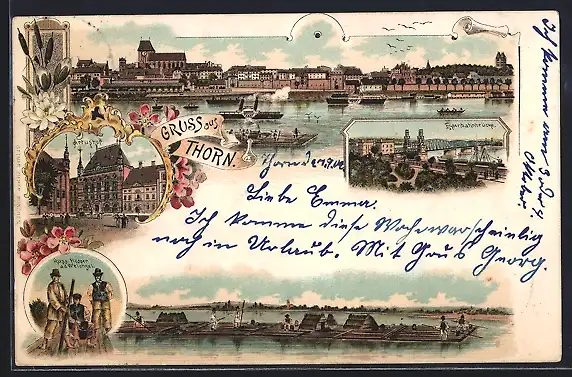 GRUSS aus
THORN.
Artushof.
Eisenbahnbrücke.
Russ. Flisser
a.d. Weichsel.
Thorn d.
Liebe Emma.
Ich komme diese Woche warscheinlig
noch in Urlaub. Mit Gruss Georg
Ich komme am 3